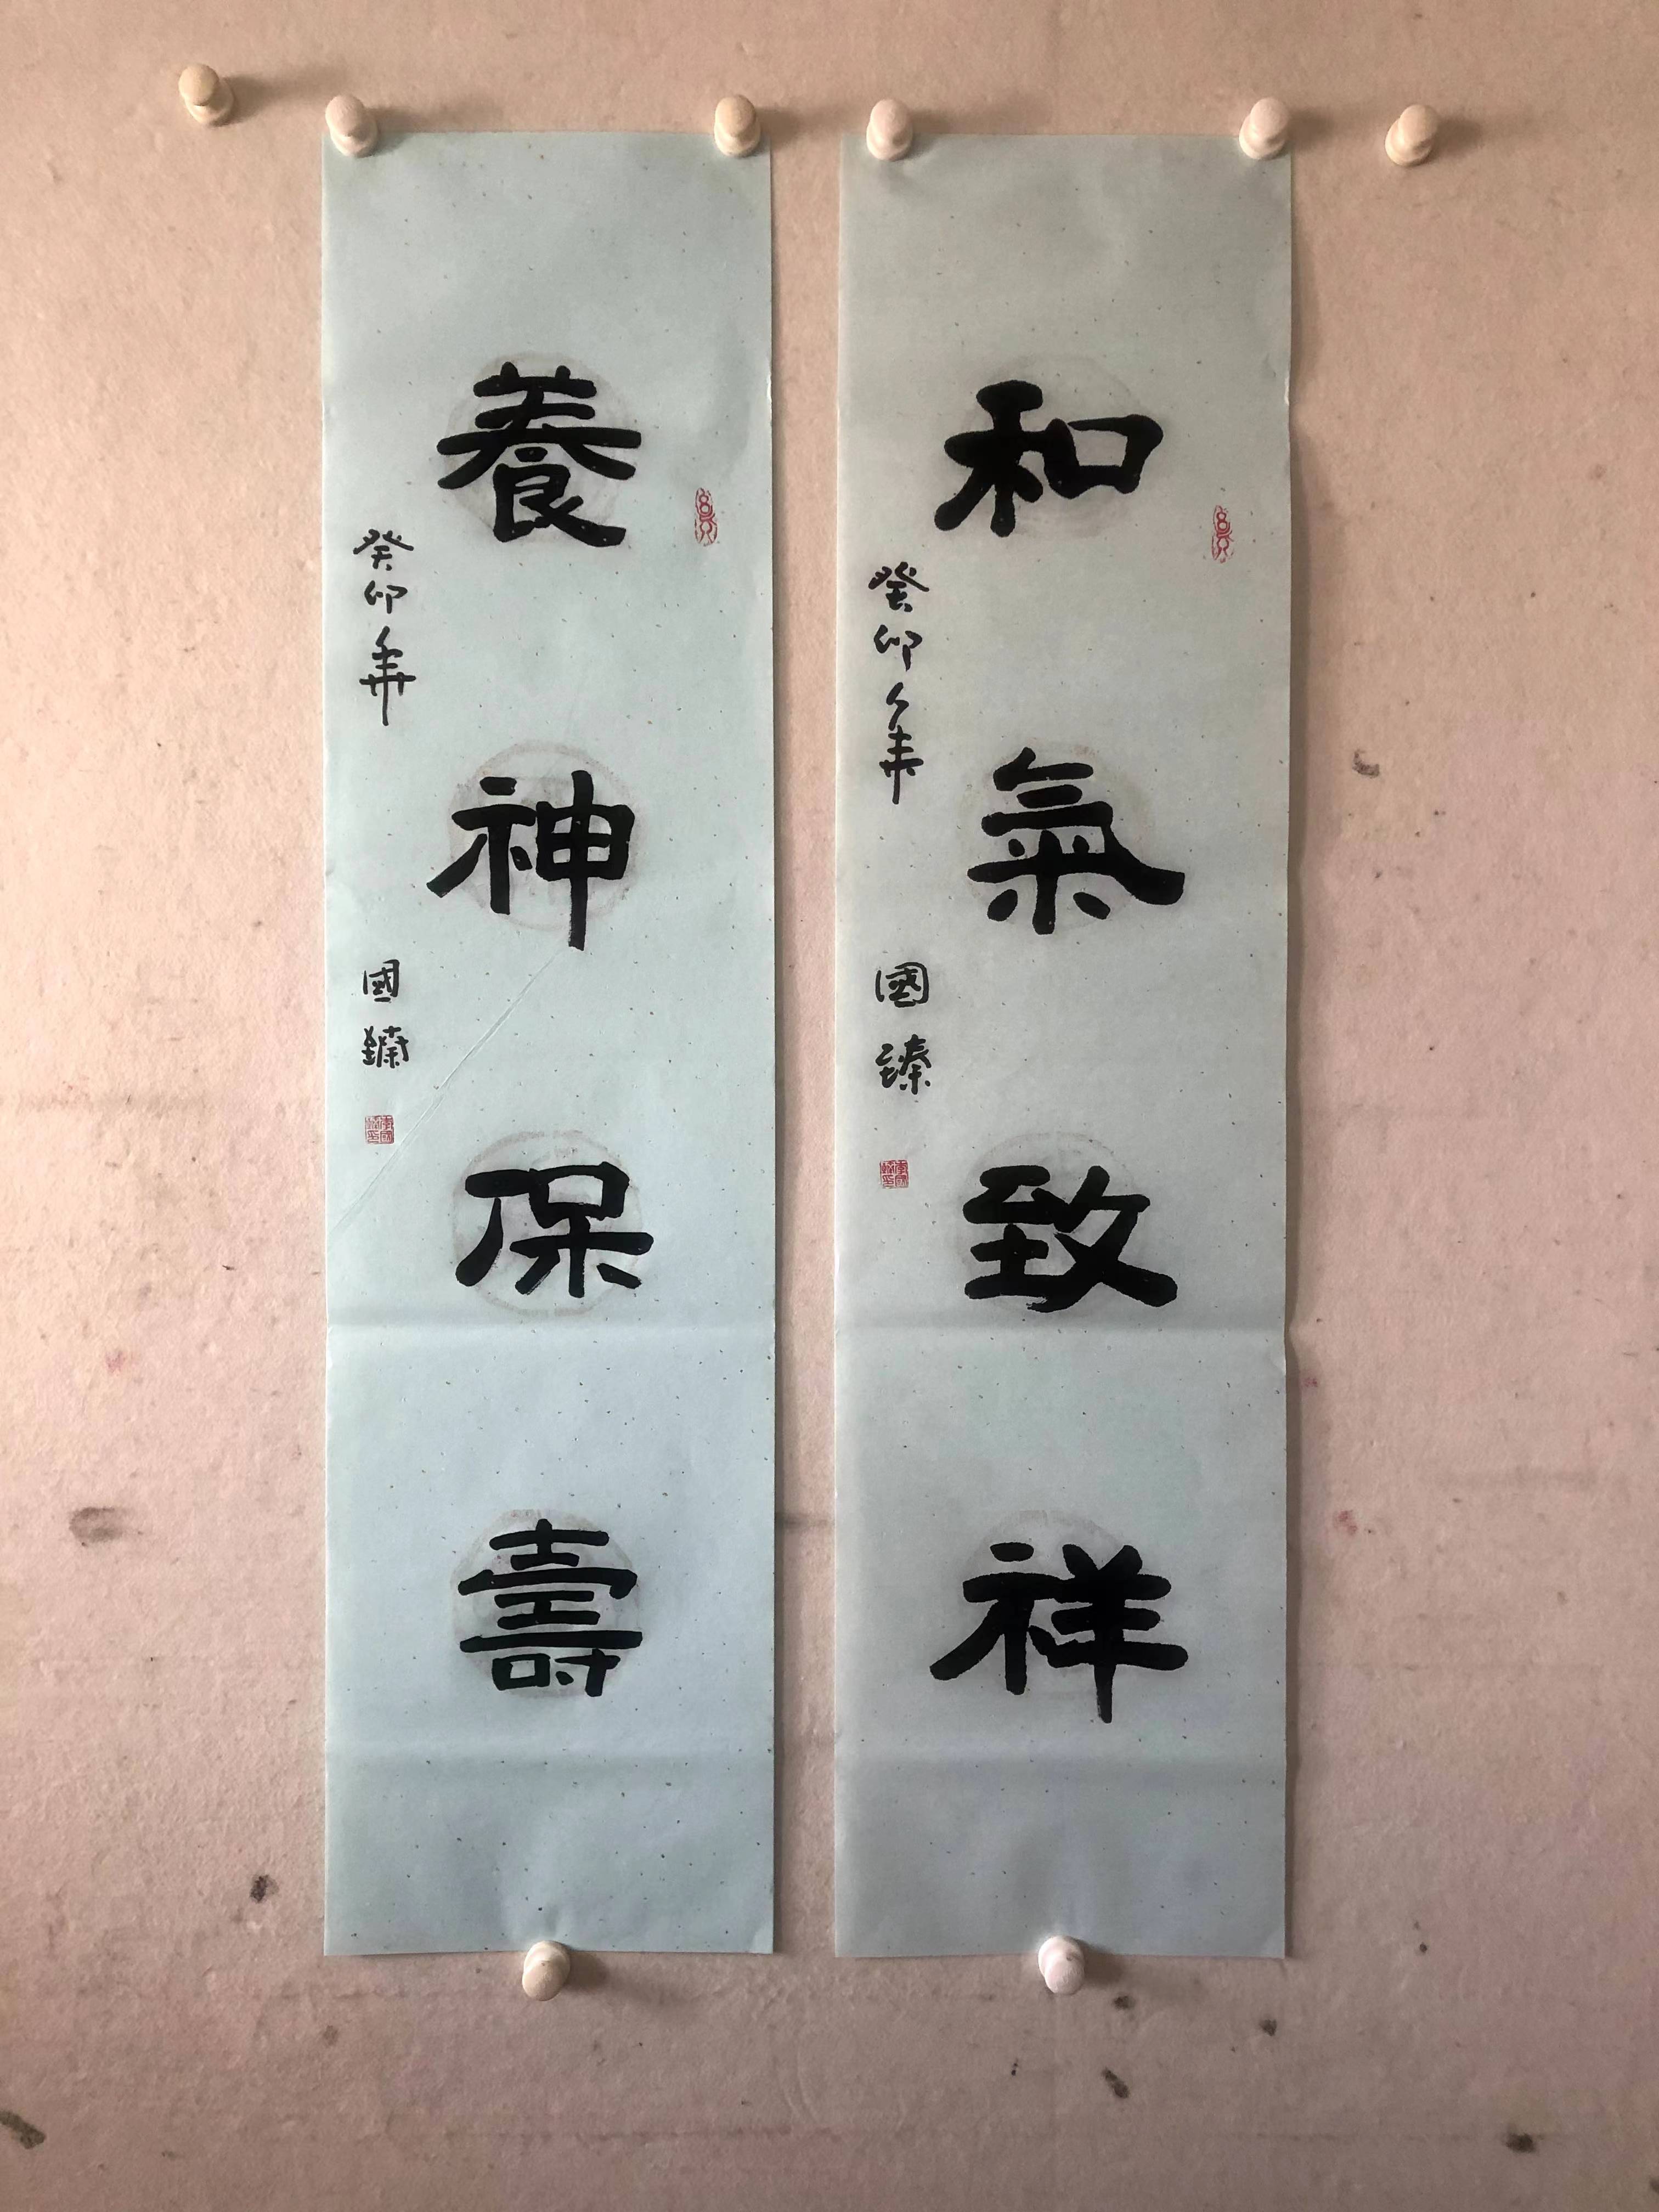 和氣致祥
癸卯年
國臻
養神保壽
癸卯年
國臻